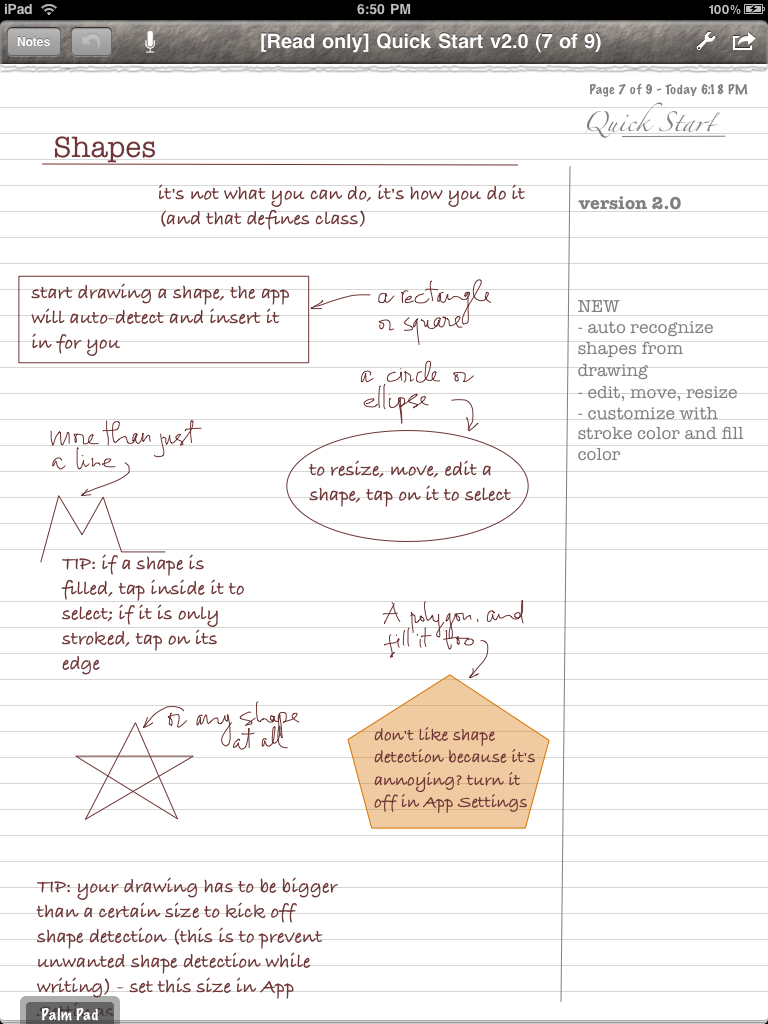 iPad
6:50 PM
100%
Notes
[Read only] Quick Start v2.0 (7 of 9)
Page 7 of 9 - Today 6:18 PM
Quick Start
Shapes
it's not what you can do, it's how you do it
(and that defines class)
version 2.0
start drawing a shape, the app
will auto-detect and insert it
in for you
a rectangle
or square
NEW
- auto recognize
shapes from
drawing
- edit, move, resize
- customize with
stroke color and fill
color
a circle or
ellipse
more than just
a line
to resize, move, edit a
shape, tap on it to select
TIP: if a shape is
filled, tap inside it to
select; if it is only
stroked, tap on its
edge
A polygon. and
fill it too
or any shape
at all
don't like shape
detection because it's
annoying? turn it
off in App Settings
TIP: your drawing has to be bigger
than a certain size to kick off
shape detection (this is to prevent
unwanted shape detection while
writing) - set this size in App
Palm Pad